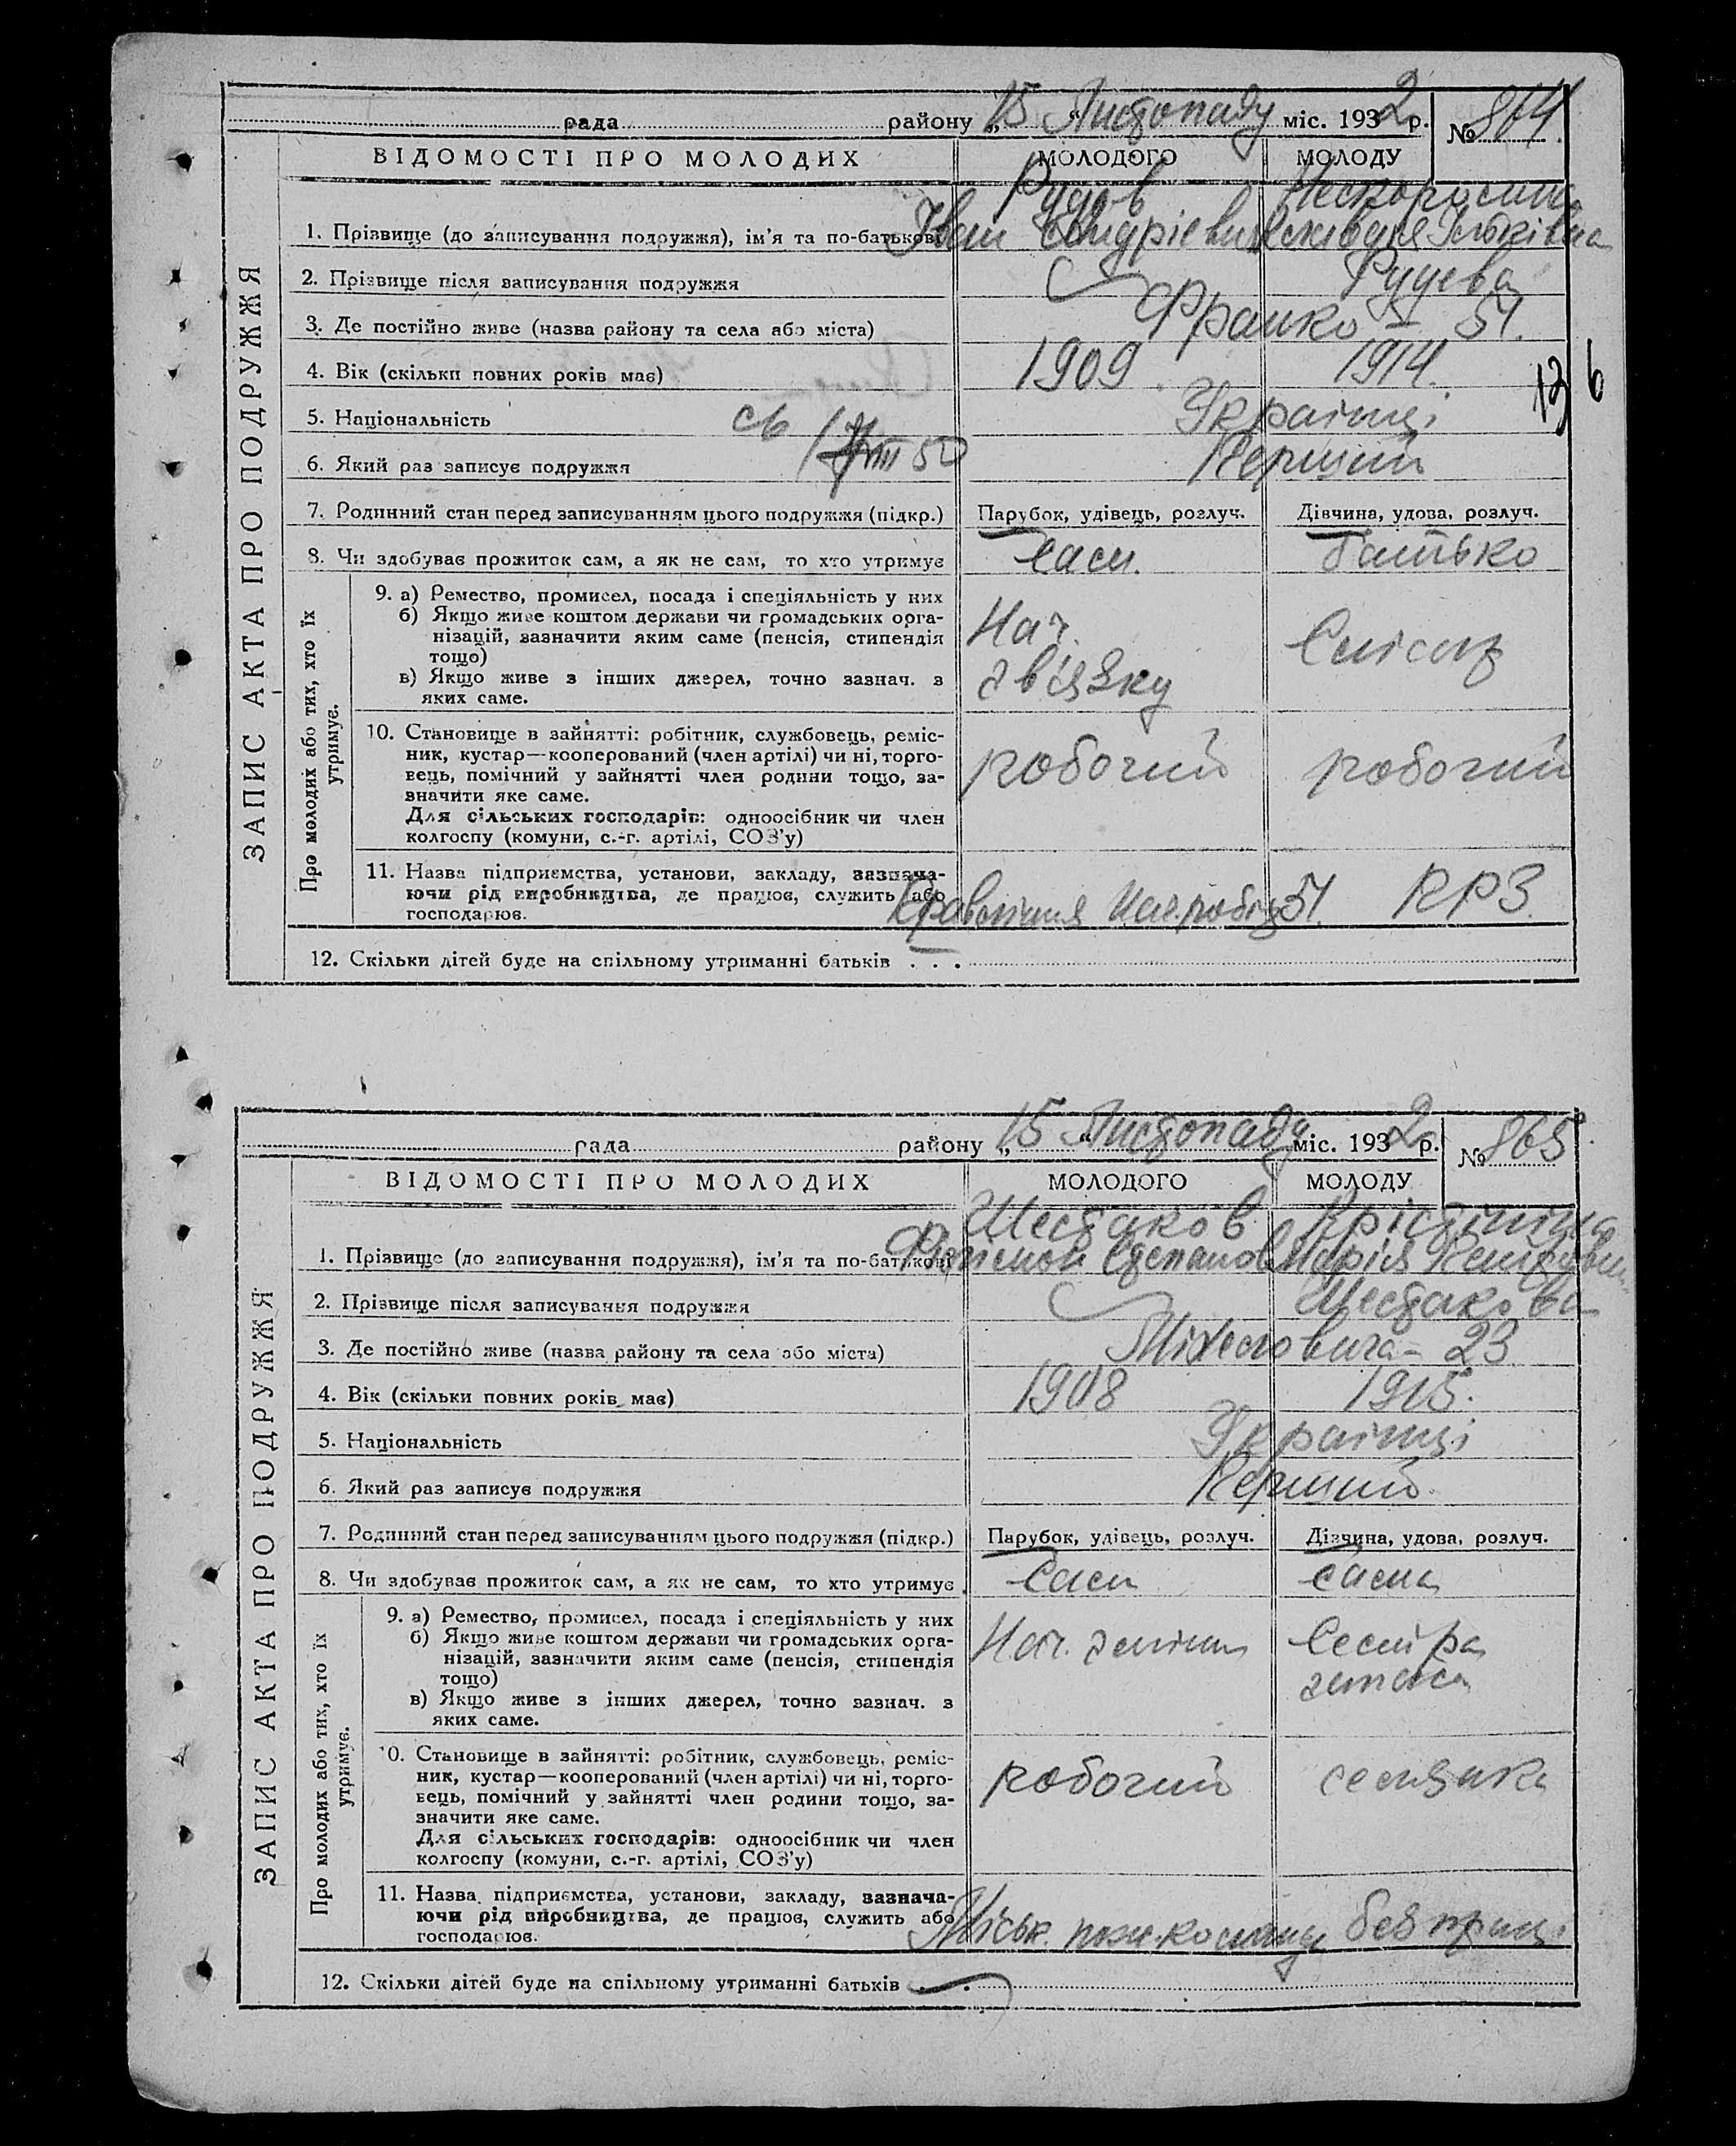 рада району „15 Листопаду міс. 1932 р. № 864.
ВІДОМОСТІ ПРО МОЛОДИХ МОЛОДОГО МОЛОДУ
ЗАПИС АКТА ПРО ПОДРУЖЖЯ
1. Прізвище (до записування подружжя), ім'я та по-батькові Іван
2. Прізвище після записування подружжя
3. Де постійно живе (назва району та села або міста) Франко – 51.
4. Вік (скільки повних років має) 1909. 1914.
5. Національність Українці
6. Який раз записує подружжя Перший
7. Родинний стан перед записуванням цього подружжя (підкр.) Парубок, удівець, розлуч. Дівчина, удова, розлуч.
8. Чи здобуває прожиток сам, а як не сам, то хто утримує сам. батько
Про молодих або тих, хто їх утримує.
9. а) Ремество, промисел, посада і спеціяльність у них
б) Якщо живе коштом держави чи громадських орга-
нізацій, зазначити яким саме (пенсія, стипендія
тощо)
в) Якщо живе з інших джерел, точно зазнач. з
яких саме.
Нач.
зв'язку
10. Становище в зайнятті: робітник, службовець, реміс-
ник, кустар—кооперований (член артілі) чи ні, торго-
вець, помічний у зайнятті член родини тощо, за-
значити яке саме.
Для сільських господарів: одноосібник чи член
колгоспу (комуни, с.-г. артілі, СОЗ'у)
робочий робочий
11. Назва підприємства, установи, закладу, зазнача-
ючи рід виробництва, де працює, служить або
господарює.
51. КРЗ.
12. Скільки дітей буде на спільному утриманні батьків . . .
13 6
рада району „15 Листопаду міс. 1932 р. № 865
ВІДОМОСТІ ПРО МОЛОДИХ МОЛОДОГО МОЛОДУ
ЗАПИС АКТА ПРО ПОДРУЖЖЯ
Шестаков
1. Прізвище (до записування подружжя), ім'я та по-батькові Степанов Марія
2. Прізвище після записування подружжя Шестакова
3. Де постійно живе (назва району та села або міста) 23
4. Вік (скільки повних років має) 1908 1915.
5. Національність Українці
6. Який раз записує подружжя Перший
7. Родинний стан перед записуванням цього подружжя (підкр.) Парубок, удівець, розлуч. Дівчина, удова, розлуч.
8. Чи здобуває прожиток сам, а як не сам, то хто утримує сам сама
Про молодих або тих, хто їх утримує.
9. а) Ремество, промисел, посада і спеціяльність у них
б) Якщо живе коштом держави чи громадських орга-
нізацій, зазначити яким саме (пенсія, стипендія
тощо)
в) Якщо живе з інших джерел, точно зазнач. з
яких саме.
Нач. Сестра
10. Становище в зайнятті: робітник, службовець, реміс-
ник, кустар—кооперований (член артілі) чи ні, торго-
вець, помічний у зайнятті член родини тощо, за-
значити яке саме.
Для сільських господарів: одноосібник чи член
колгоспу (комуни, с.-г. артілі, СОЗ'у)
робочий селянка
11. Назва підприємства, установи, закладу, зазнача-
ючи рід виробництва, де працює, служить або
господарює.
Міськ. пож. команда без праці
12. Скільки дітей буде на спільному утриманні батьків